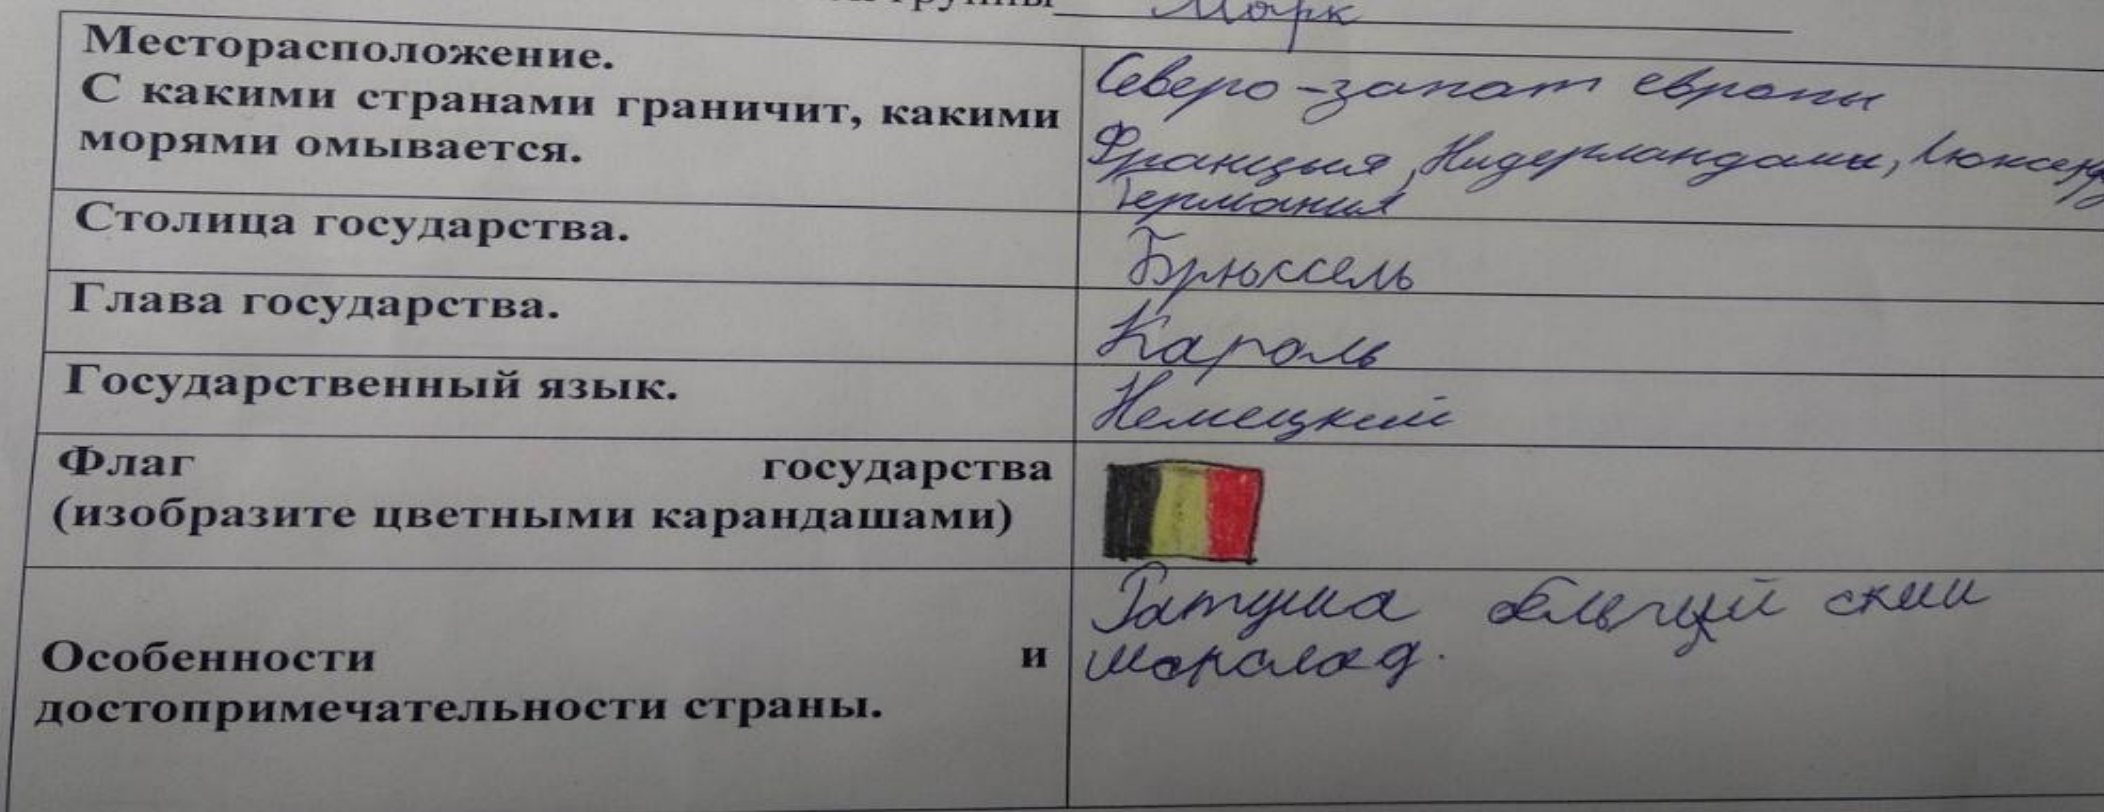 Марк
Месторасположение.
С какими странами граничит, какими
морями омывается.
Северо-запат европы
Франция, Нидерландами, Люксер
Германия
Столица государства.
Брюссель
Глава государства.
Кароль
Государственный язык.
Немецкий
Флаг государства
(изобразите цветными карандашами)
Особенности и
достопримечательности страны.
Ратуша бельгий скии
шоколад.